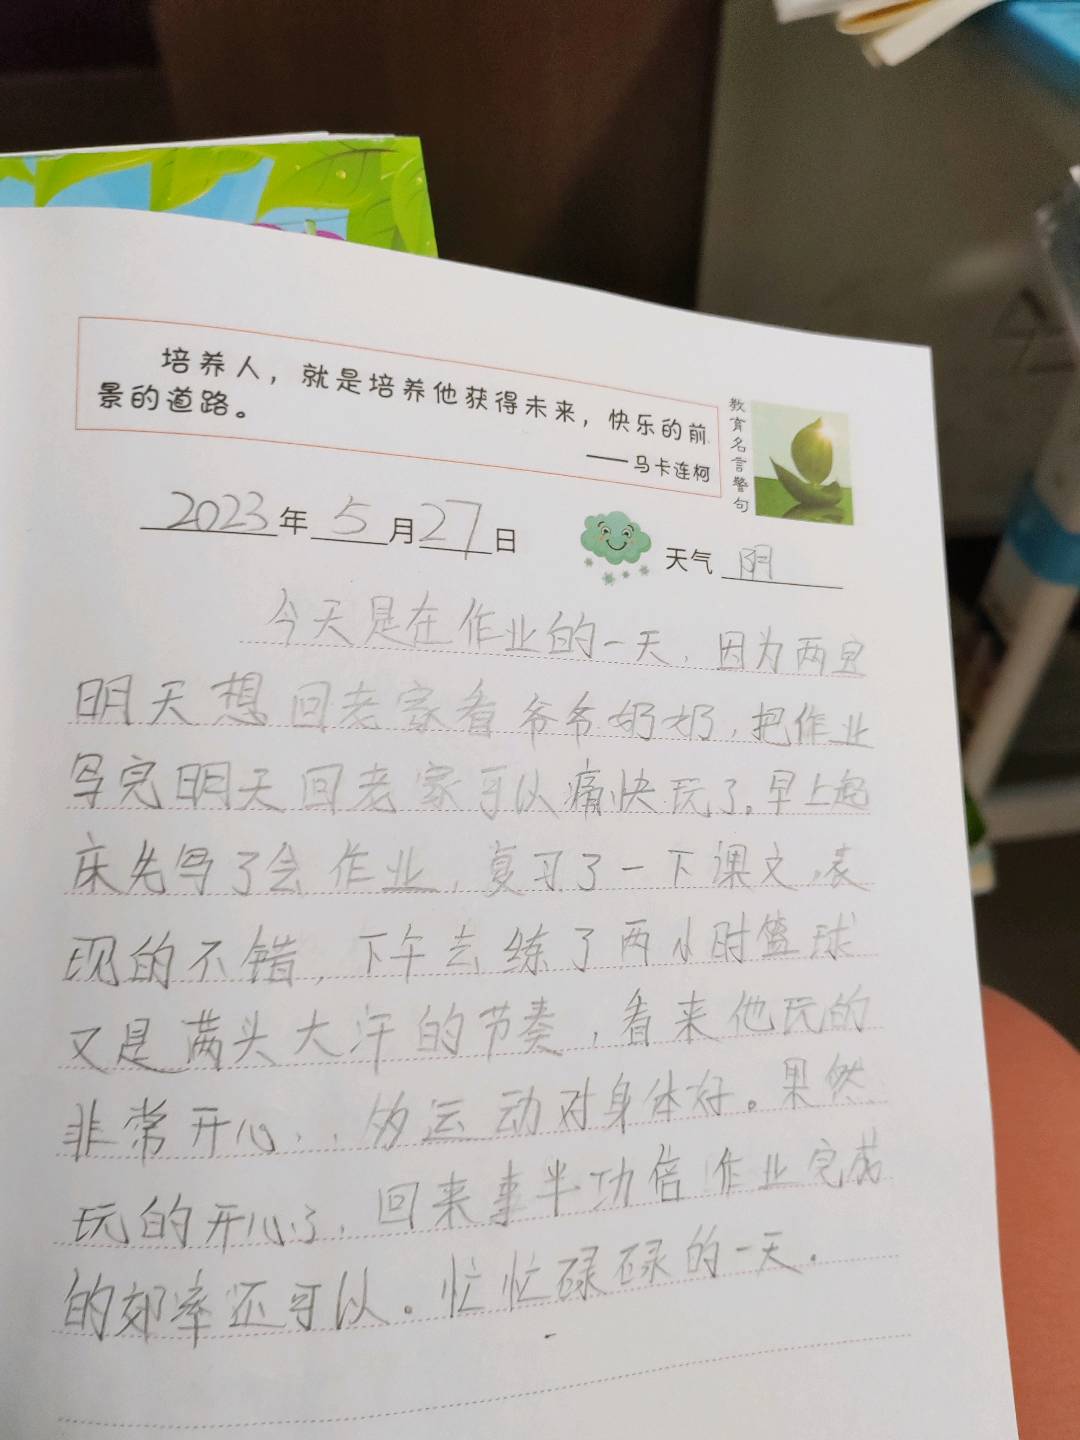 培养人，就是培养他获得未来，快乐的前
景的道路。
——马卡连柯
教育名言警句
2023年5月27日
天气 阴
今天是在作业的一天，因为两宝
明天想回老家看爷爷奶奶，把作业
写完明天回老家可以痛快玩了。早上起
床先写了会作业，复习了一下课文，表
现的不错，下午去练了两小时篮球
又是满头大汗的节奏，看来他玩的
非常开心，，运动对身体好。果然
玩的开心了，回来事半功倍作业完成
的效率还可以。忙忙碌碌的一天。